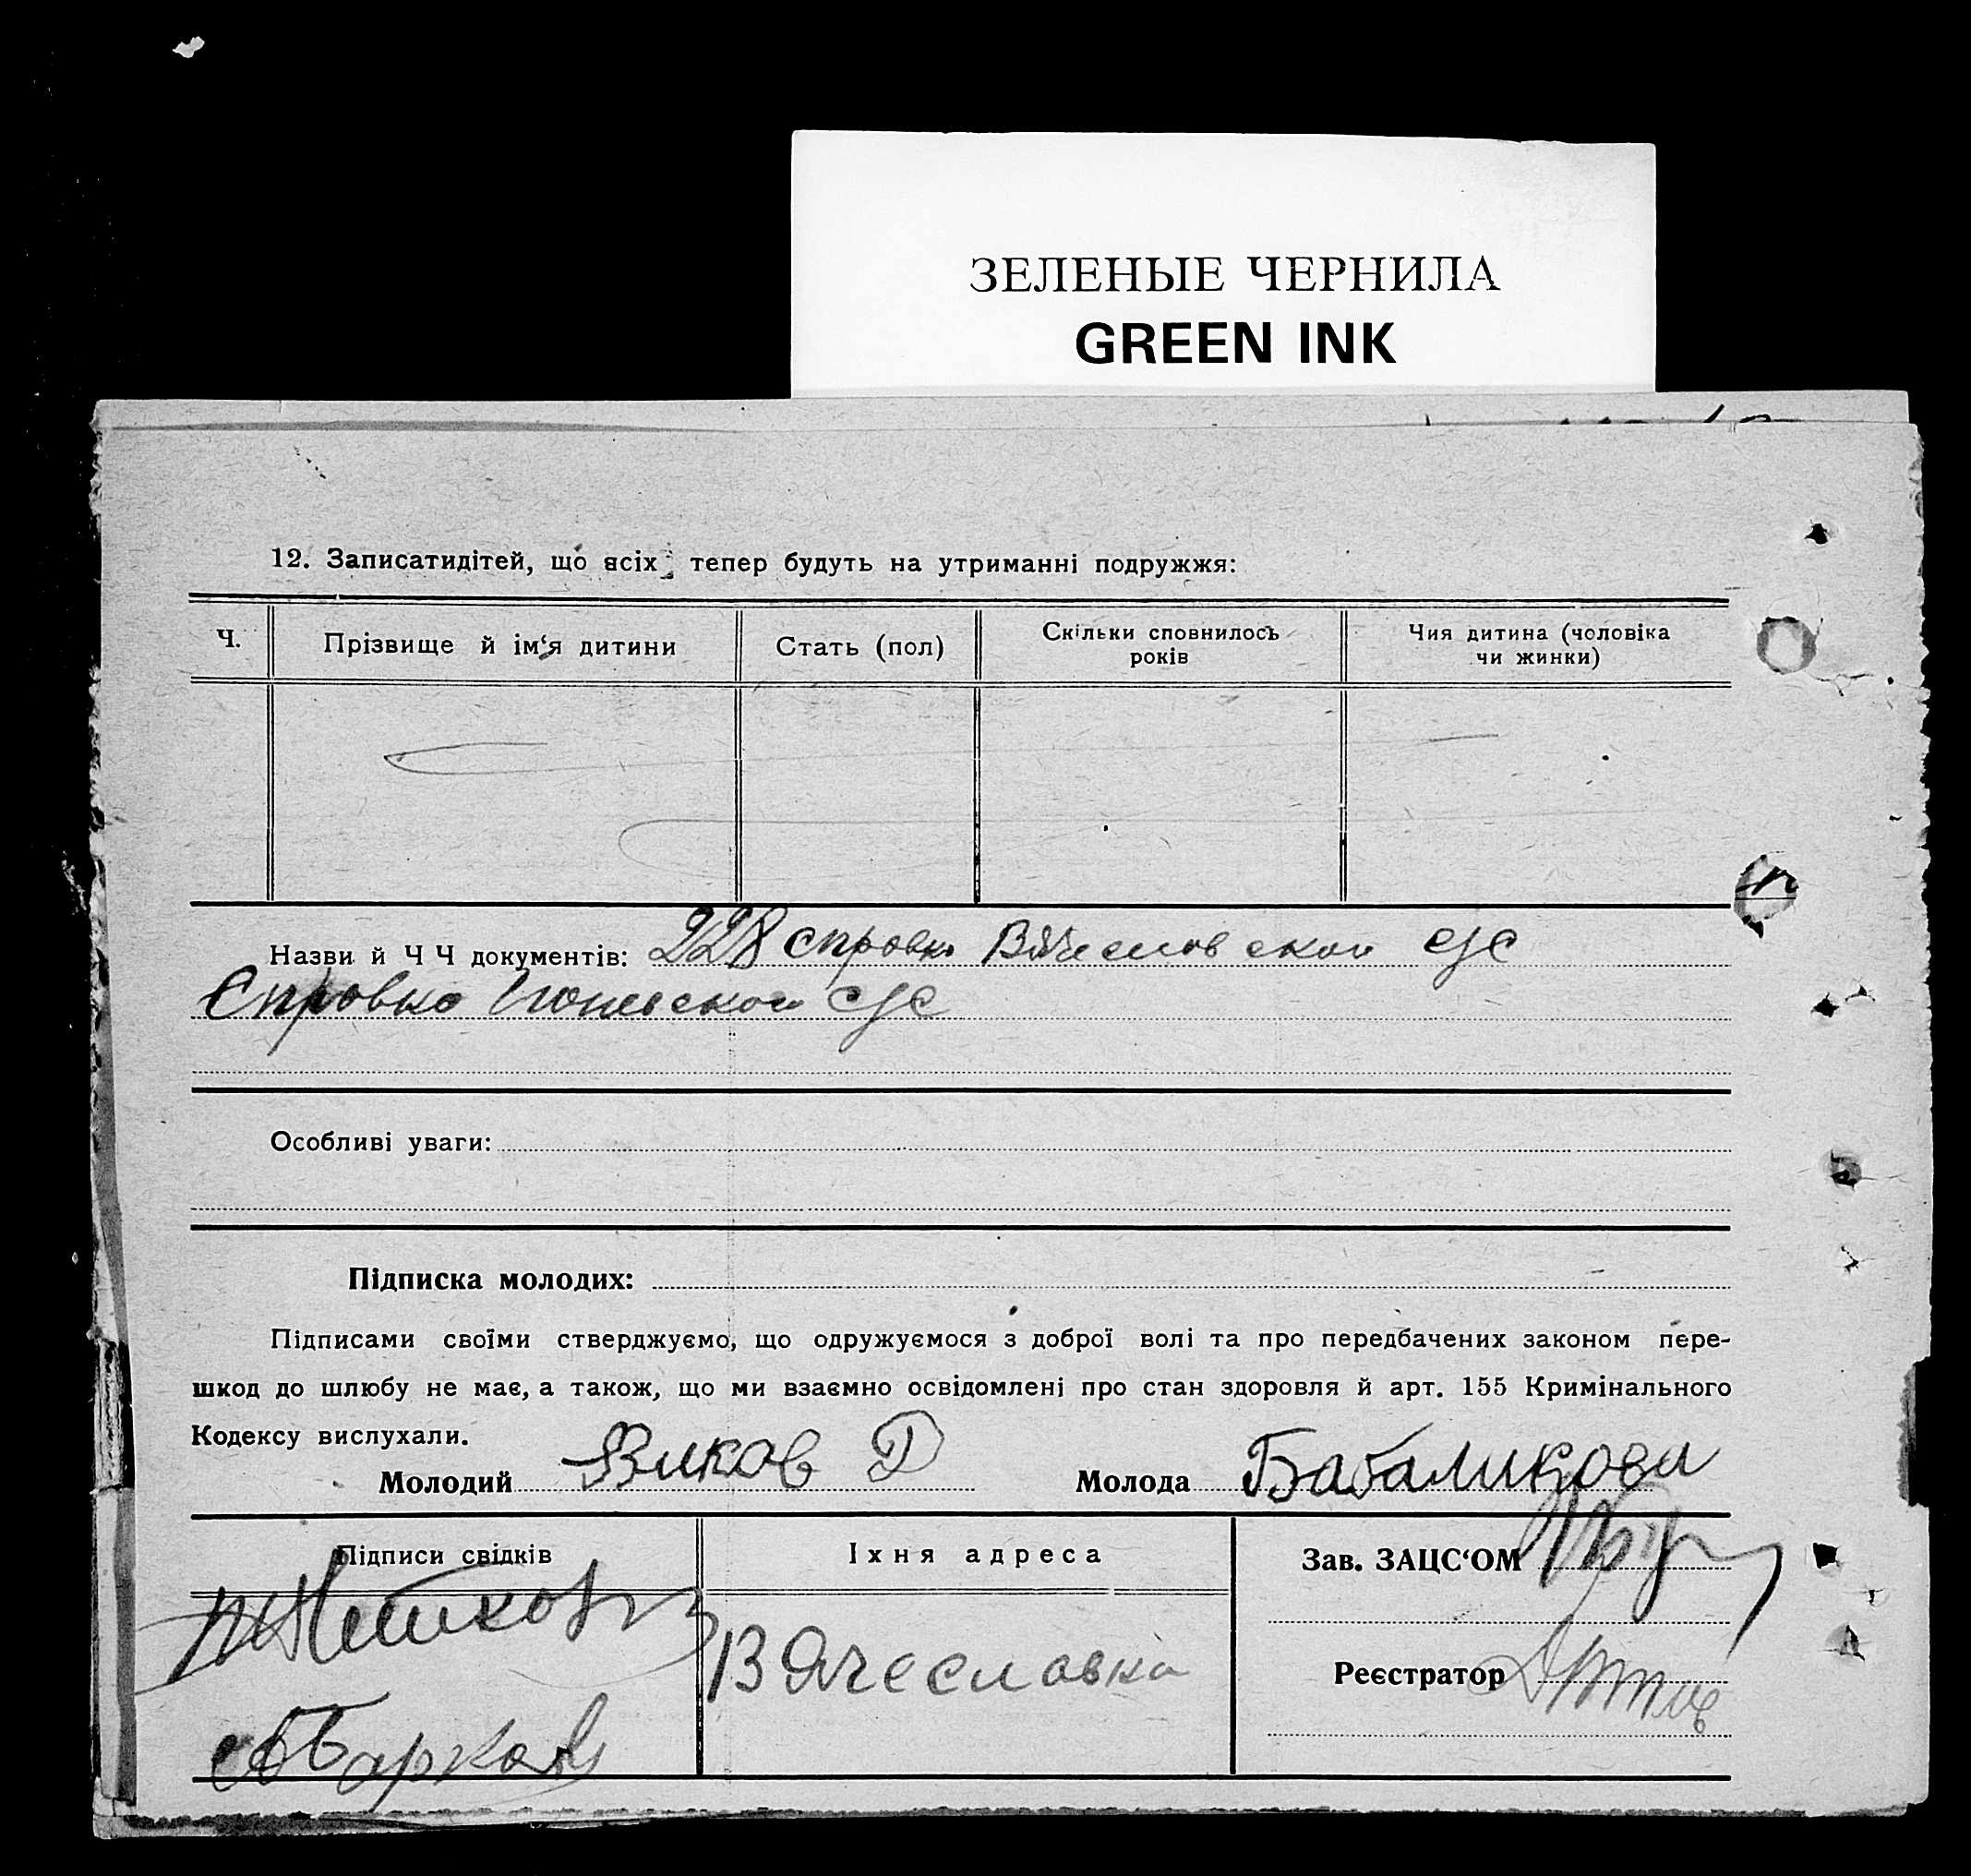 ЗЕЛЕНЫЕ ЧЕРНИЛА
GREEN INK
12. Записатидітей, що всіх тепер будуть на утриманні подружжя:
Ч.
Прізвище й ім‘я дитини
Стать (пол)
Скільки сповнилось
років
Чия дитина (чоловіка
чи жинки)
Назви й Ч Ч документів: 228 справка Вячеславской с/с
Справка с/с
Особливі уваги:
Підписка молодих:
Підписами своїми стверджуємо, що одружуємося з доброї волі та про передбачених законом пере-
шкод до шлюбу не має, а також, що ми взаємно освідомлені про стан здоровля й арт. 155 Кримінального
Кодексу вислухали.
Молодий Д Молода Бабаликова
Підписи свідків
Їхня адреса
Зав. ЗАЦС‘ОМ
Вячеславка
Реєстратор